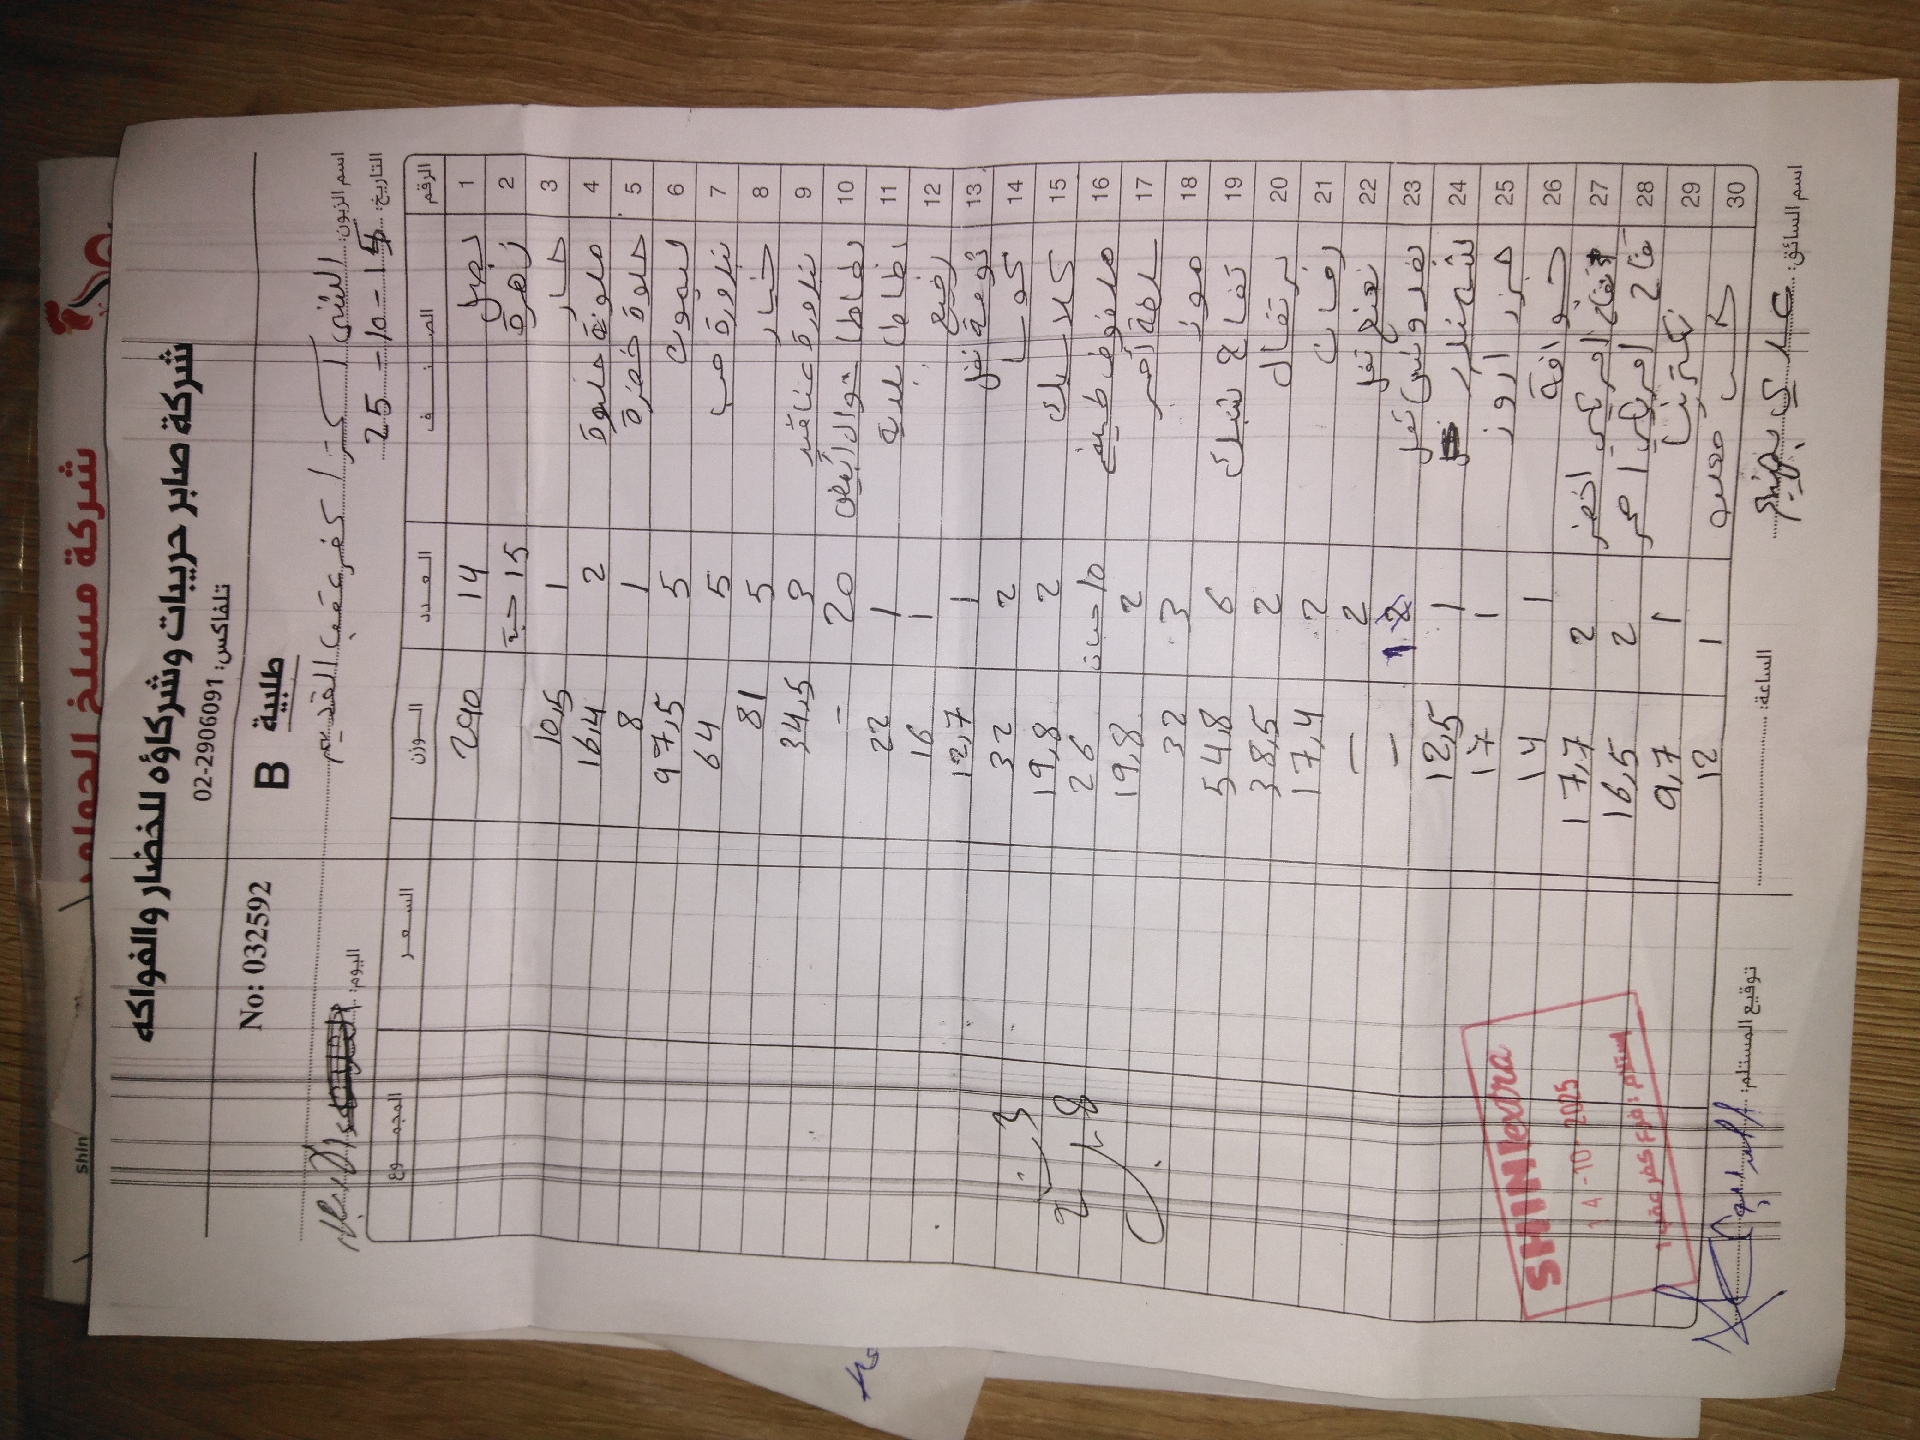 شركة مسلخ الجولان
shin
شركة صابر حريبات وشركاؤه للخضار والفواكه
تلفاكس: 02-2906091
No: 032592
B طلبية
اسم الزبون: الشني اكسترا كفر عقب القديم
اليوم: الأربعاء
التاريخ: 15-10-25
الرقم الصنف العدد الوزن السعر المجموع
1 بصل 14 290
2 زهرة 15 حبة
3 حار 1 10,5
4 ملونة حلوة 2 16,4
5 حلوة خضرة 1 8
6 ليمون 5 97,5
7 بندورة حب 5 64
8 خيار 5 81
9 بندورة عناقيد 3 34,5
10 بطاطا شوال أبيض 20 -
11 بطاطا بلدية 1 22
12 1 16
13 ثومة نفل 1 12,7
14 كوسا 2 32
15 2 19,8
16 ملفوف 10 حبات 26
17 2 19,8
18 موز 3 32
19 تفاح 6 54,8
20 برتقال 2 38,5
21 رمان 2 17,4
22 نعنع نفل 2 -
23 بقدونس نفل 1 -
24 شمندر 1 12,5
25 جزر اروز 1 17
26 جوافة 1 14
27 تفاح امريكي اخضر 2 17,7
28 تفاح امريكي احمر 2 16,5
29 نكترينا 1 9,7
30 1 12
SHINI extra
14-10-2025
استلام: فرع كفر عقب 1
اسم السائق: علي
الساعة:
توقيع المستلم: